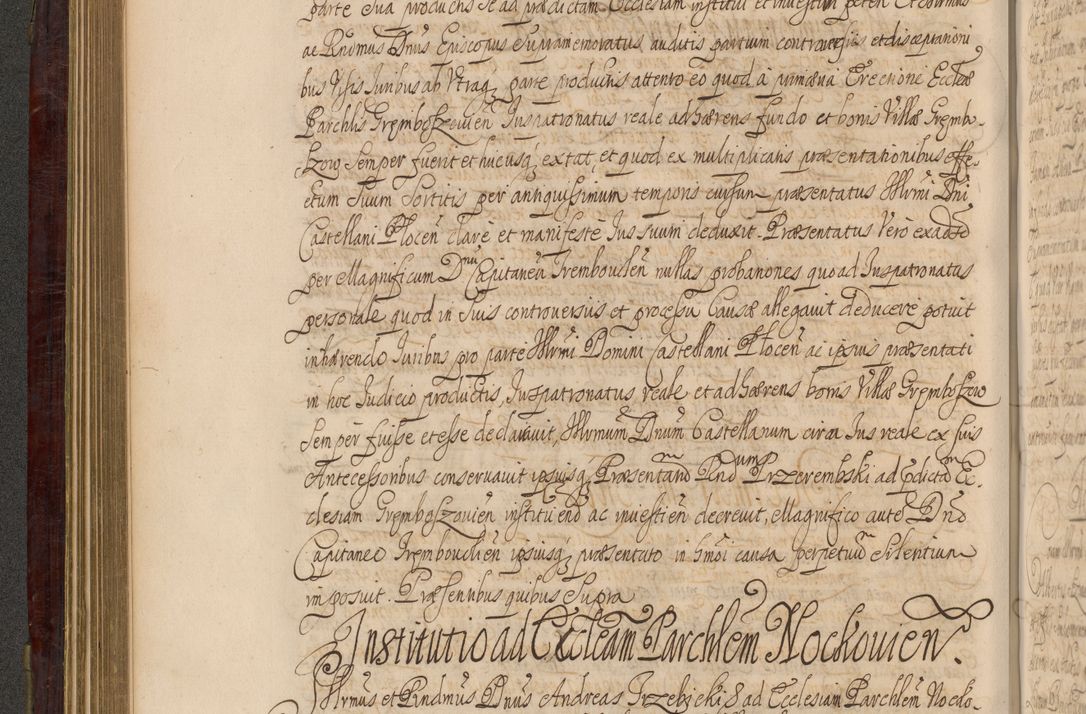 parte sua productis se ad prædictam Ecclesiam institui et investiri peten Et Illrmus
ac Rndmus Dnus Episcopus supramemoratus auditis partium controversiis et disceptationi
bus Visis Iuribus ab Utraq; parte productis attento eo quod à primæva Erectione Eccliæ
Parchlis Grembosżovien Iuspatronatus reale adhærens fundo et bonis Villæ Gremb-
szow semper fuerit et hucusq; extat, et quod ex multiplicatis præsentationibus effe-
ctum suum sortitis per antiquissimum temporis cursum præsentatus Illrmi Dni
Castellani Plocen clare et manifeste Ius suum deduxit. Præsentatus Vero ex adverso
per Magnificum Dnum Capitaneū Trembovlien nullas probationes quoad Iuspatronatus
personale quod in suis controversiis et processu Causæ allegavit deducere potuit
inhærendo Iuribus pro parte Illrmi Domini Castellani Plocen ac ipsius præsentati
in hoc Iudicio productis, Iuspatronatus reale et adhærens bonis Villæ Gremboszow
semper fuisse et esse declaravit, Illrmum Dnum Castellanum circa Ius reale ex suis
Antecessoribus conservavit ipsiusq; Præsentatum Rndum Przerembski ad prædictam Ec-
clesiam Grembosżovien instituend ac investien decrevit, Magnifico aute Dno
Capitaneo Trembovlien ipsiusq; præsentato in hmoi causa perpetuū silentium
imposuit. Præsentibus quibus supra
Institutio ad Eccleām Parchlem Nockovien.
Illrmus et Rndmus Dnus Andreas Trzebicki &c ad Ecclesiam Parchlem Nocko-